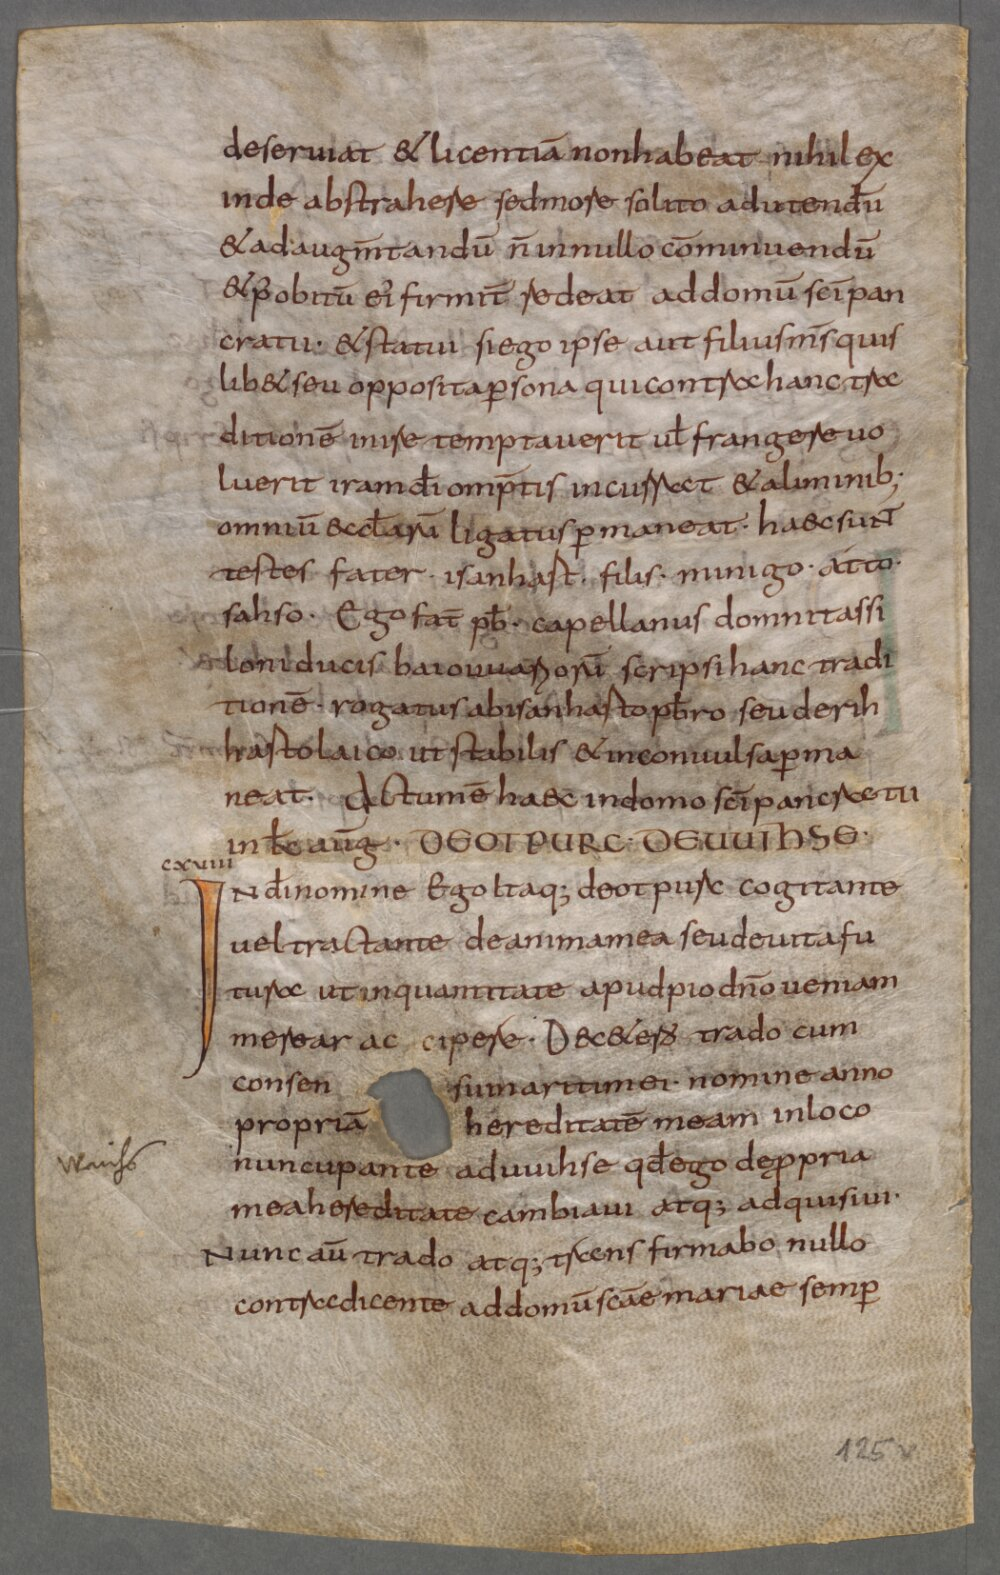 deseruiat & licentiā nonhabeat nihil ex
inde abstrahere sedmore solito adutendū
& adaugm̄tandū n̄ innullo cōminuendū
& p̱ obitū ei' firmit̄ sedeat addomū sc̄i pan
cratii · & statui siego ipse aut filiusm̄s quis
lib& seu opposita p̱sona qui contra hanc tra
ditionē inire temptauerit ul̄ frangere uo
luerit iram dī omp̄tis incurrat & aliminib;
omniū ęccl̄arū ligatus p̱maneat · haec sunt̄
testes fater · isanhast · filis · nunigo · atto ·
sahso · Ego fat̄ pb̄ · capellanus domni tassi
loni ducis baiouuariorū scripsi hanc tradi
tionē · rogatus abisanhasto pb̄ro seu derih
hasto laico ut stabilis & inconuulsa p̱ma
neat · Actumē haec indomo sc̄i pancratii
in kl̄ aūg · DEOTPURC · DEUUIHSE ·
cxviiii
IN dī nomine Ego Itaq; deotpurc cogitante
uel tractante deanimamea seu deuita fu
tura ut inquantitate apud pio dn̄o ueniam
merear ac cipere · Dec&ero trado cum
consen su maritimei · nomine anno
propriā hereditatē meam inloco
nuncupante aduuihse qd̄ ego dep̱pria
mea hereditate cambiaui atq; adquisiui ·
Nunc aū trado atq; trans firmabo nullo
contradicente addomū sc̄ae mariae semp̱
125v